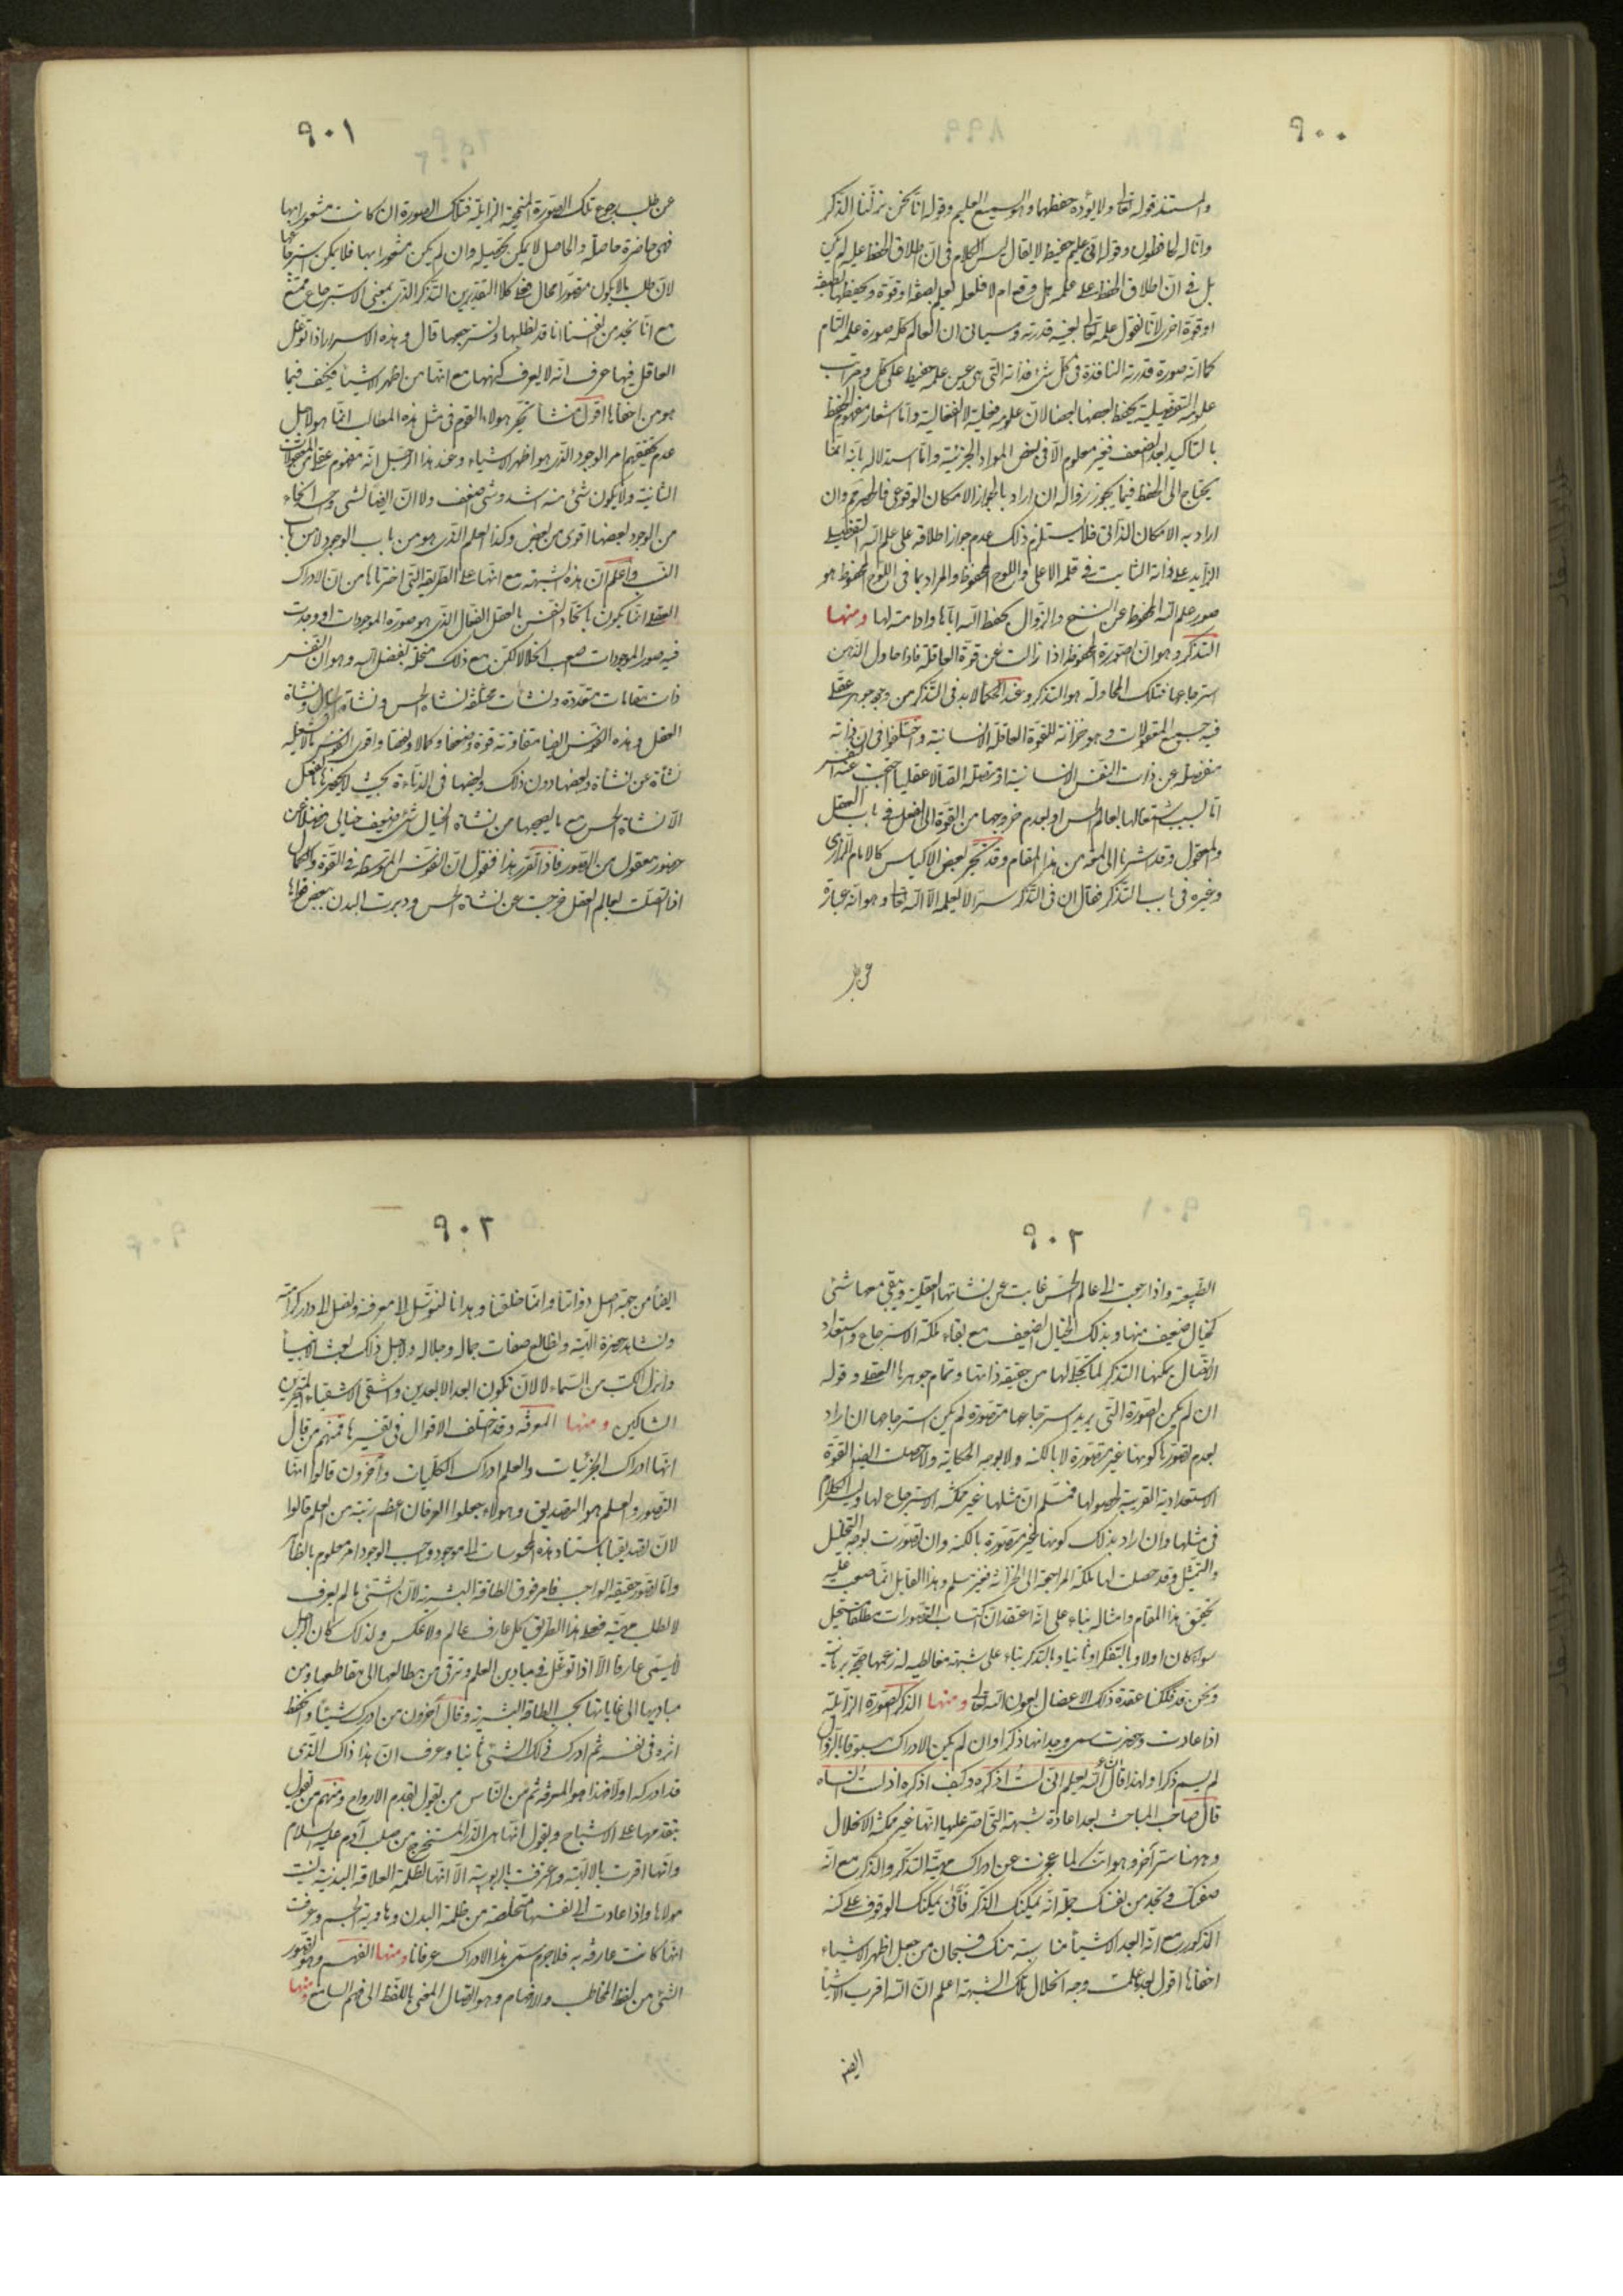 ٩٠٠
والمستند قوله تعالى ولا يؤده حفظهما وهو السميع العليم وقوله انا نحن نزلنا الذكر
وانا له لحافظون وقوله انى عليم حفيظ لا يقال ليس الكلام فى ان اطلاق الحفظ عليه لم يكن
بل فى ان اطلاق الحفظ على علمه هل وقع ام لا فلعله لعلم بصفة او قوة ويحفظها بصفة
او قوة اخرى لانا نقول علمه تعالى بعينه قدرته وسيأتى ان العالم كله صورة علمه التام
كما انه صورة قدرته النافذة فى كل شئ فذاته التى هى عين علمه حفيظ على كل ومراتب
علومه التفصيلية يحفظ بعضها بعضا لان علومه فعلية لا انفعالية واما اشعار مفهوم الحفظ
بالتاكيد بعد الضعف فغير معلوم الا فى بعض المواد الجزئية واما استدلاله بانه انما
يحتاج الى الحفظ فيما يجوز زواله ان اراد بالجواز الامكان الوقوعى فالحصر مم وان
اراد به الامكان الذاتى فلا يستلزم ذلك عدم جواز اطلاقه على علم الله التفصيلى
الزايد على ذاته الثابت فى قلمه الاعلى واللوح المحفوظ والمراد بما فى اللوح المحفوظ هو
صور علم الله المحفوظ عن النسخ والزوال بحفظ الله اياها وادامته لها ومنها
التذكر وهو ان الصورة المحفوظة اذا زالت عن قوة العاقلة فاذا حاول الذهن
استرجاعها فتلك المحاولة هو التذكر وعند الحكما لا بد فى التذكر من وجود جوهر عقلى
فيه جميع المعقولات وهو خزانة للقوة العاقلة الانسانية واختلفوا فى ان ذاته
منفصلة عن ذات النفس الانسانية او متصلة اتصالا عقليا احتجب عنه النفس
اما بسبب اشتغالها بعالم الحس او لعدم خروجها من القوة الى الفعل فى باب العقل
والمعقول وقد اشرنا الى لمعة من هذا المقام وقد تحير بعض الاكياس كالامام الرازى
وغيره فى باب التذكر فقال ان فى التذكر سرا لا يعلمه الا الله تعالى وهو انه عبارة
عن طلب
٩٠١
عن طلب رجوع تلك الصورة المنمحية الزايلة فتلك الصورة ان كانت مشعورا بها
فهى حاضرة حاصلة والحاصل لا يمكن تحصيله وان لم يكن مشعورا بها فلا يمكن استرجاعها
لان طلب ما لا يكون متصورا محال فعلى كلا التقديرين التذكر الذى بمعنى الاسترجاع ممتنع
مع انا نجد من انفسنا انا قد نطلبها ونسترجعها قال وهذه الاسرار اذا توغل
العاقل فيها عرف انه لا يعرف كنهها مع انها من اظهر الاشياء فكيف فيما
هو من اخفاها اقول منشأ تحير هؤلاء القوم فى مثل هذه المطالب انما هو لاجل
عدم تحقيقهم امر الوجود الذى هو اظهر الاشياء وعند هذا الرجل انه مفهوم عقلى من المعقولات
الثانية ولا يكون شئ منه اشد وشئ اضعف ولا ان ايضا لشى واحد انحاء
من الوجود بعضها اقوى من بعض وكذا العلم الذى هو من باب الوجود لا من باب
النسب واعلم ان هذه الشبهة مع انها على الطريقة التى اخترناها من ان الادراك
العقلى انما يكون باتحاد النفس بالعقل الفعال الذى هو صورة الموجودات او وجدت
فيه صور الموجودات صعب انحلالا لكن مع ذلك منحلة بفضل الله وهو ان النفس
ذات مقامات متعددة ونشئات مختلفة نشاة الحس ونشاة الخيال ونشاة
العقل وهذه النفوس ايضا متفاوتة قوة وضعفا وكمالا ونقصا واقوى النفوس ما لا تشغله
نشأة عن نشأة وبعضها دون ذلك وبعضها فى الدناءة بحيث لا يحضرها بالفعل
الا نشاة الحس مع ما يصحبها من نشاة الخيال شئ ضعيف خيالى فضلا عن
حضور معقول من الصور فاذا تقرر هذا فنقول ان النفوس المتوسطة فى القوة والكمال
اذا اتصلت بعالم العقل خرجت عن نشاة الحس ودبرت البدن ببعض قواها
٩٠٢
الطبيعية واذا رجعت الى عالم الحس غابت عن نشاتها العقلية ويبقى معها شئى
كخيال ضعيف منها وبذلك الخيال الضعيف مع بقاء ملكة الاسترجاع واستعداد
الاتصال يمكنها التذكر لما تجلى لها من حقيقة ذاتها وتمام جوهرها العقلى وقوله
ان لم يكن الصورة التى يريد استرجاعها متصورة لم يكن استرجاعها ان اراد
بعدم تصورها كونها غير متصورة لا بالكنه ولا بوجه الحكاية ولا حصلت ايضا القوة
الاستعدادية القريبة لحصولها فنسلم ان مثلها غير ممكنة الاسترجاع لها وليس الكلام
فى مثلها وان اراد بذلك كونها غير متصورة بالكنه وان تصورت بوجه التخييل
والتمثيل وقد حصلت لها ملكة المراجعة الى الخزانة فغير مسلم وهذا القايل انما صعب عليه
تحقيق هذا المقام وامثاله بناء على انه اعتقد ان اكتساب التصورات مطلقا مستحيل
سواء كان اولا وبالتفكر او ثانيا وبالتذكر بناء على شبهة مغالطية له زعمها حجة برهانية
ونحن قد فككنا عقدة ذلك الاعضال بعون الله تعالى ومنها الذكر الصورة الزايلة
اذا عادت وحضرت سمى وجدانها ذكرا وان لم يكن الادراك مسبوقا بالزوال
لم يسم ذكرا ولهذا قال الشاعر الله يعلم انى لست اذكره وكيف اذكره اذ لست انساه
قال صاحب المباحث بعد اعادة شبهته التى اصر عليها انها غير ممكنة الانحلال
وههنا سر آخر وهو انك لما عجزت عن ادراك مهية التذكر والذكر مع انه
صفتك وتجد من نفسك جملة انه يمكنك الذكر فانى يمكنك الوقوف على كنه
المذكور مع انه ابعد الاشياء مناسبة منك فسبحان من جعل اظهر الاشياء
اخفاها اقول بعد ما علمت وجه انحلال تلك الشبهة اعلم ان الله اقرب الاشيا
ايضا
٩٠٣
ايضا من جهة اصل ذواتنا وانما خلقنا وهدانا لنتوسل الى معرفته ونصل الى دار كرامته
ونشاهد حضرة الهيته ونطالع صفات جماله وجلاله ولاجل ذلك بعث الانبيا
وانزل الكتب من السماء لا لان نكون ابعد الابعدين واشقى الاشقياء المتحيرين
الشاكين ومنها المعرفة وقد اختلف الاقوال فى تفسيرها فمنهم من قال
انها ادراك الجزئيات والعلم ادراك الكليات وآخرون قالوا انها
التصور والعلم هو التصديق وهؤلاء جعلوا العرفان اعظم رتبة من العلم قالوا
لان تصديقنا باستناد هذه المحسوسات الى موجود واجب الوجود امر معلوم بالظاهر
واما تصور حقيقة الواجب فامر فوق الطاقة البشرية لان الشئى ما لم يعرف
لا تطلب مهيته فعلى هذا الطريق كل عارف عالم ولا عكس ولذلك كان الرجل
لا يسمى عارفا الا اذا توغل فى ميادين العلم وترقى من مطالعها الى مقاطعها ومن
مباديها الى غاياتها بحسب الطاقة البشرية وقال آخرون من ادرك شيئا وانحفظ
اثره فى نفسه ثم ادرك ذلك الشئى ثانيا وعرف ان هذا ذاك الذى
قد ادركه اولا فهذا هو المعرفة ثم من الناس من يقول بقدم الارواح ومنهم من يقول
بتقدمها على الاشباح ويقول انها هى الذر المستخرج من صلب آدم عليه السلام
وانها اقرت بالالهية واعترفت بالربوبية الا انها لظلمة العلاقة البدنية نسيت
مولاها واذا عادت الى نفسها متخلصة من ظلمة البدن وهاوية الجسم وعرفت
انها كانت عارفة به فلا جرم سمى هذا الادراك عرفانا ومنها الفهم وهو تصور
الشئى من لفظ المخاطب والافهام وهو ايصال المعنى باللفظ الى فهم السامع ومنها